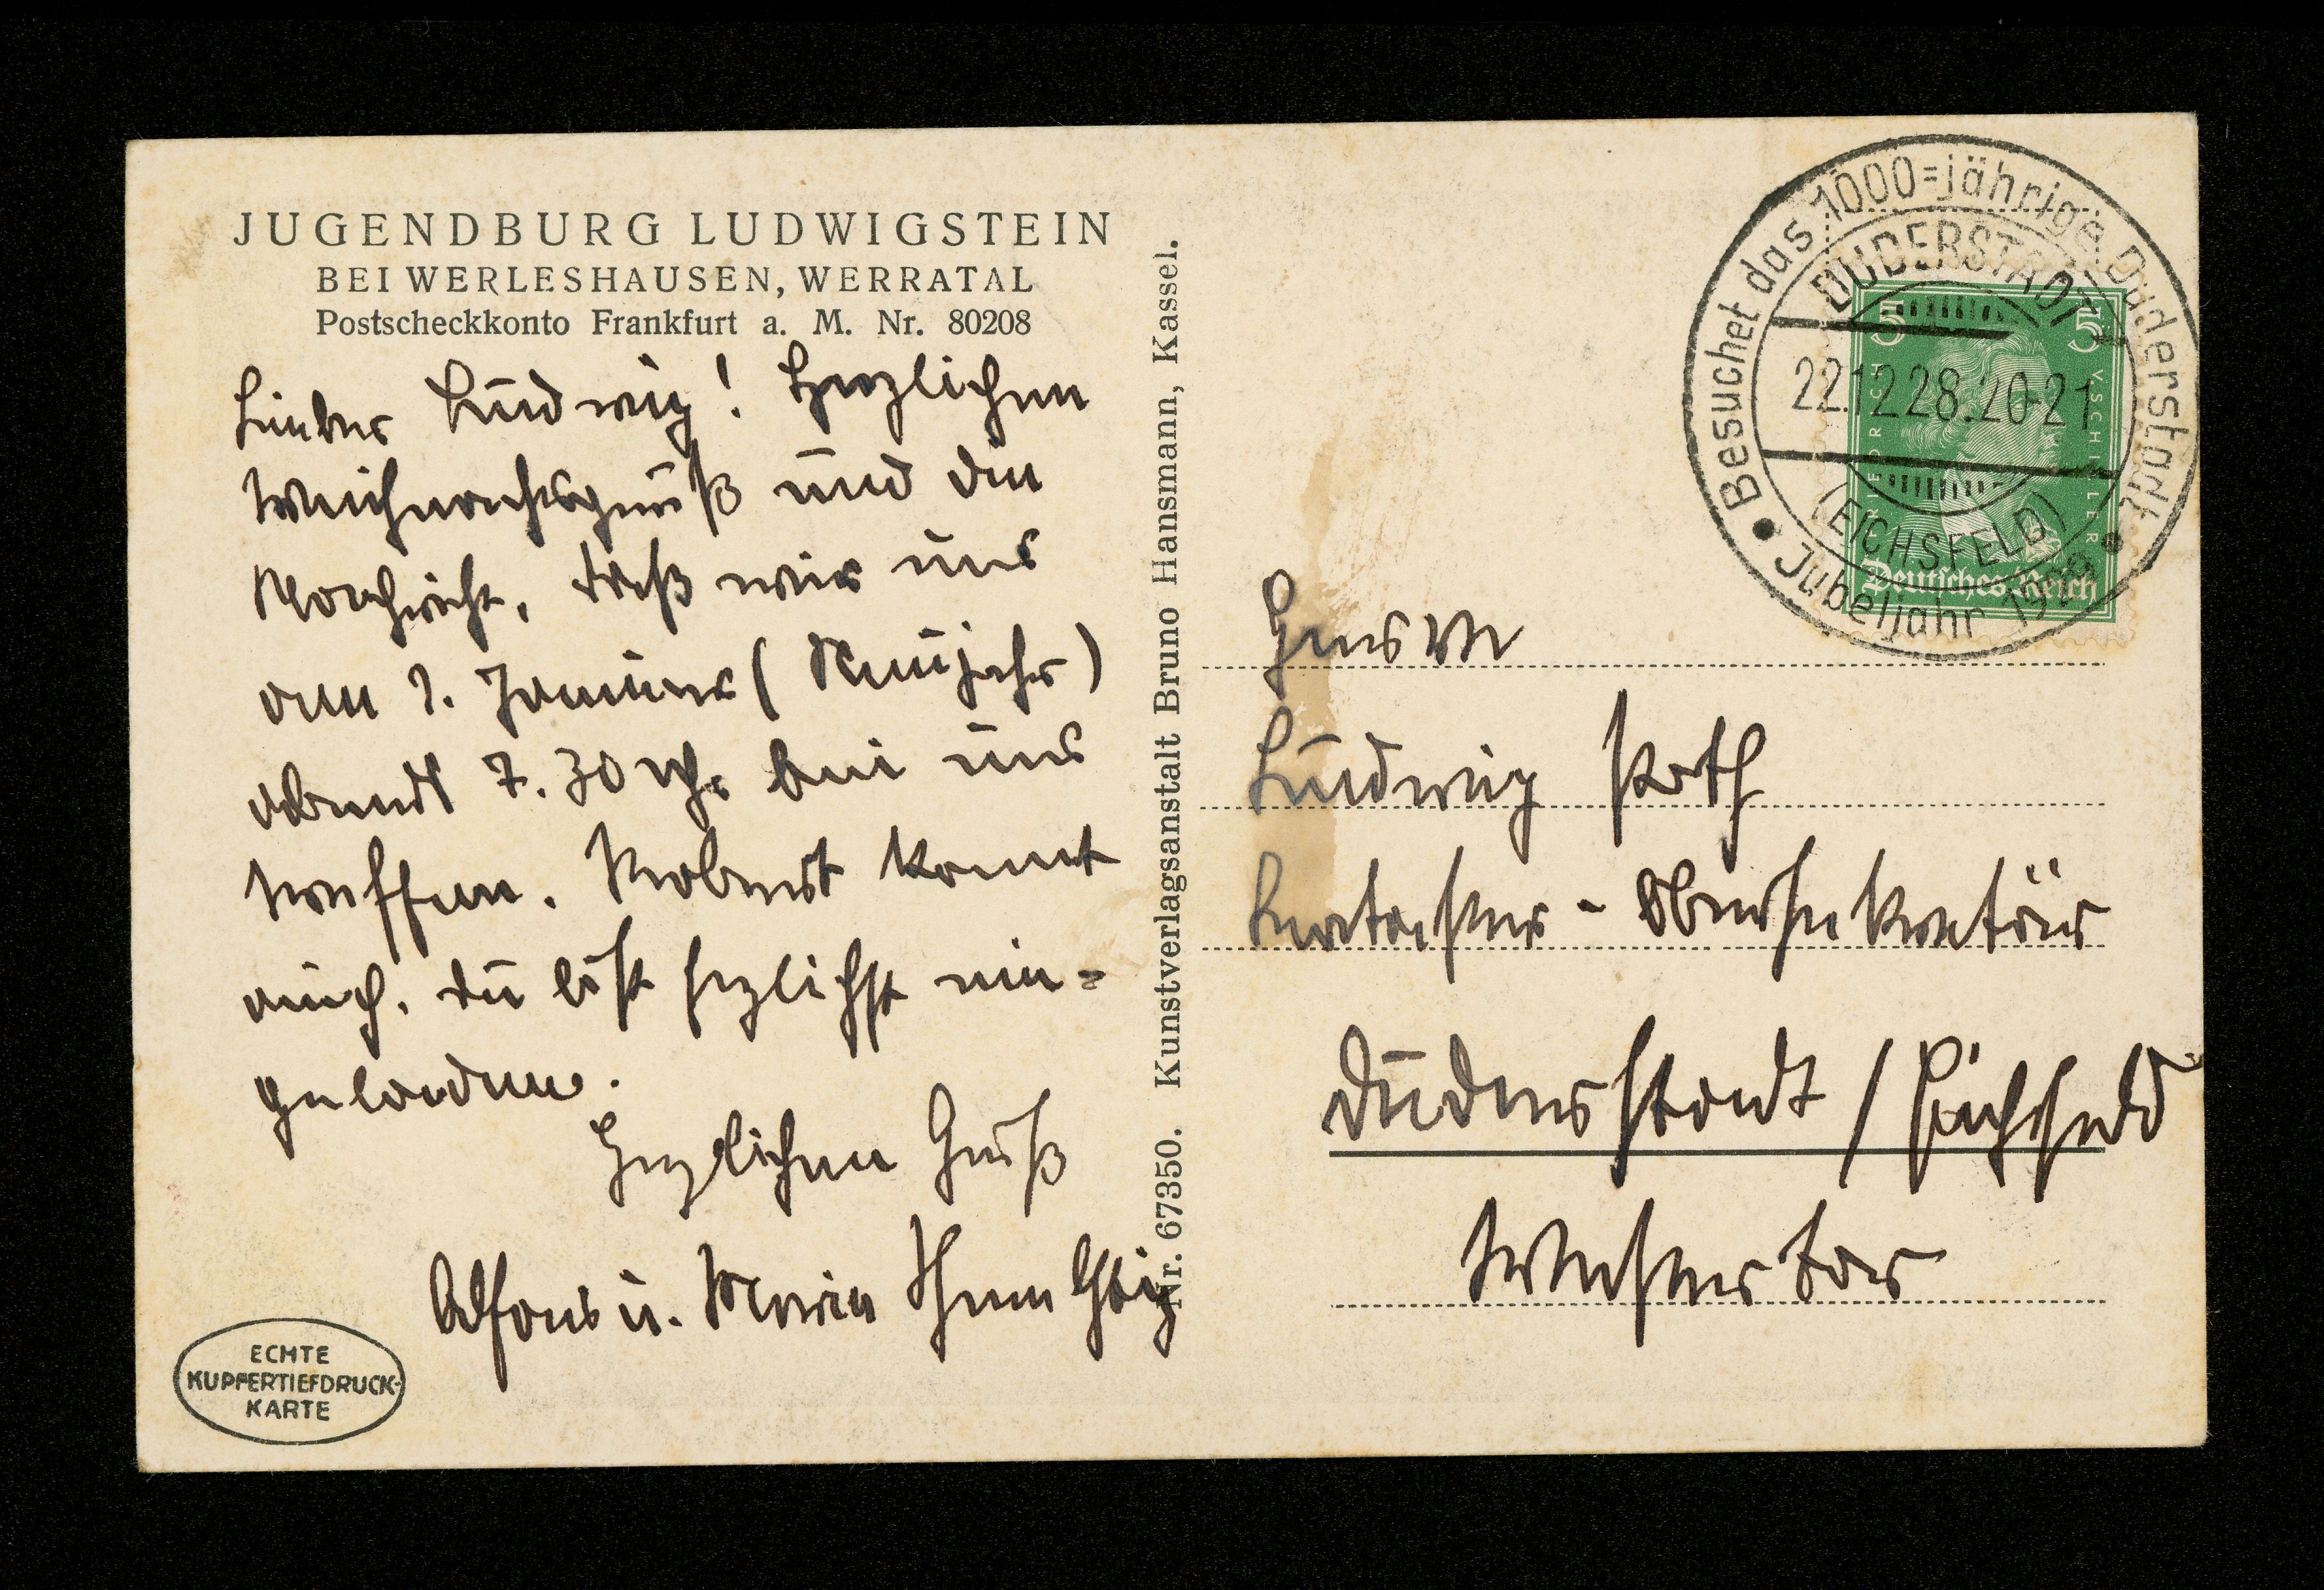 JUGENDBURG LUDWIGSTEIN
BEI WERLESHAUSEN, WERRATAL
Postscheckkonto Frankfurt a. M. Nr. 80208
Lieber Ludwig! Herzlichen
Weihnachtsgruß und die
Nachricht, daß wir uns
am 1. Januar (Neujahr)
abends 7.30 Uhr bei uns
treffen. Robert kommt
auch. Du bist hezlichst ein=
geladen.
Herzlichen Gruß
Alfons u. Maria
ECHTE
KUPFERTIEFDRUCK-
KARTE
Nr. 67350. Kunstverlagsanstalt Bruno Hansmann, Kassel.
Besuchet das 1000=jährige Duderstadt
DUDERSTADT
22.12.28.20-21
(EICHSFELD)
Jubeljahr 1929
5 5
FRIEDRICH V SCHILLER
Deutsches Reich
Herrn
Ludwig Koth
Kataster - Obersekretär
Duderstadt / Eichsfeld
Westertor